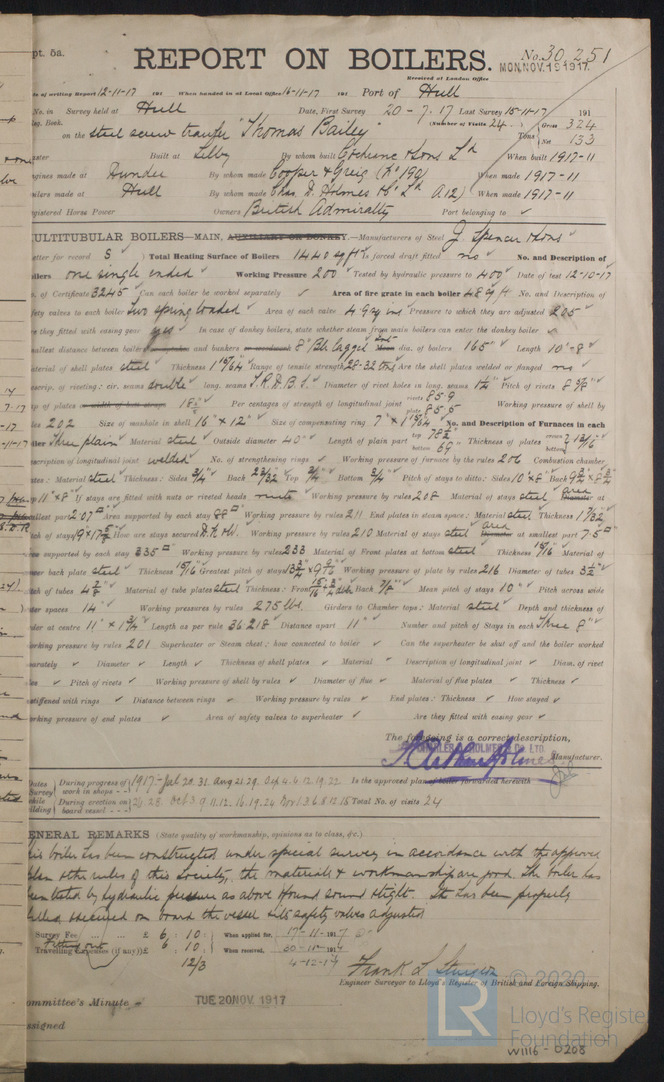 pt. 5a.
REPORT ON BOILERS.
No. 30,251
MON. NOV. 19 1917.
Received at London Office
of writing Report 12-11-17 191 When handed in at Local Office 16-11-17 191 Port of Hull
No. in Survey held at Hull Date, First Survey 20-7-17 Last Survey 15-11-17 191
Reg. Book. (Number of Visits 24)
on the steel screw trawler "Thomas Bailey" Tons Gross 324 Net 133
Built at Selby By whom built Cochrane & Sons Ld When built 1917-11
Engines made at Dundee By whom made Cooper & Greig (No 199) When made 1917-11
Boilers made at Hull By whom made Chas. D. Holmes & Co Ld When made 1917-11
Registered Horse Power Owners British Admiralty Port belonging to ✓
MULTITUBULAR BOILERS—MAIN, AUXILIARY OR DONKEY.—Manufacturers of Steel J. Spencer & Sons
Letter for record S Total Heating Surface of Boilers 1440 sq ft Is forced draft fitted no No. and Description of
Boilers one single ended Working Pressure 200 Tested by hydraulic pressure to 400 Date of test 12-10-17
No. of Certificate 3245 Can each boiler be worked separately ✓ Area of fire grate in each boiler 48 sq ft No. and Description of
safety valves to each boiler two spring loaded Area of each valve Pressure to which they are adjusted 205
Are they fitted with easing gear yes In case of donkey boilers, state whether steam from main boilers can enter the donkey boiler ✓
Smallest distance between boilers and bunkers dia. of boilers 165" Length 10'-8
Material of shell plates steel Thickness 1 15/64 Range of tensile strength 28-32 tons Are the shell plates welded or flanged no
Descrip. of riveting: cir. seams double long. seams T.R.D.B.S. Diameter of rivet holes in long. seams 1 1/4" Pitch of rivets 8 5/8"
Lap of plates or width of butt straps Per centages of strength of longitudinal joint rivets 85.9 plate 85.5 Working pressure of shell by
rules 202 Size of manhole in shell 16" × 12" Size of compensating ring No. and Description of Furnaces in each
boiler three plain Material steel Outside diameter 40" Length of plain part top bottom Thickness of plates crown bottom 13/16
Description of longitudinal joint welded No. of strengthening rings ✓ Working pressure of furnace by the rules 206 Combustion chamber
plates: Material steel Thickness: Sides 3/4 Back 23/32 Top 3/4 Bottom 3/4 Pitch of stays to ditto: Sides 10" × 8" Back
Top 11" × 8" If stays are fitted with nuts or riveted heads nuts Working pressure by rules 208 Material of stays steel area at
smallest part 2.07 Area supported by each stay 88 Working pressure by rules 211 End plates in steam space: Material steel Thickness 1 7/32
Pitch of stays How are stays secured D.N.&W. Working pressure by rules 210 Material of stays steel area at smallest part 7.5
Area supported by each stay 335 Working pressure by rules 233 Material of Front plates at bottom steel Thickness 15/16 Material of
Lower back plate steel Thickness 15/16 Greatest pitch of stays Working pressure of plate by rules 216 Diameter of tubes 3 1/2"
Pitch of tubes Material of tube plates steel Thickness: Front 15/16 Back 7/8 Mean pitch of stays 10" Pitch across wide
water spaces 14" Working pressures by rules 275 lbs. Girders to Chamber tops: Material steel Depth and thickness of
girder at centre 11" × 1 3/4" Length as per rule Distance apart 11" Number and pitch of Stays in each three 8"
Working pressure by rules 201 Superheater or Steam chest; how connected to boiler ✓ Can the superheater be shut off and the boiler worked
separately ✓ Diameter ✓ Length ✓ Thickness of shell plates ✓ Material ✓ Description of longitudinal joint ✓ Diam. of rivet
holes ✓ Pitch of rivets ✓ Working pressure of shell by rules ✓ Diameter of flue ✓ Material of flue plates ✓ Thickness ✓
If stiffened with rings ✓ Distance between rings ✓ Working pressure by rules ✓ End plates: Thickness ✓ How stayed ✓
Working pressure of end plates ✓ Area of safety valves to superheater ✓ Are they fitted with easing gear ✓
The foregoing is a correct description,
CHARLES D. HOLMES & CO. LTD.
Manufacturer.
Dates of Survey while building
During progress of work in shops - - 1917:- Jul 20. 31. Aug 21. 29. Sep. 4. 6. 12. 19. 22. Is the approved plan of boiler forwarded herewith
During erection on board vessel - - - 26. 28. Oct. 3. 9. 11. 12. 16. 19. 24 Nov 1. 3. 6. 8. 12. 15 Total No. of visits 24
GENERAL REMARKS (State quality of workmanship, opinions as to class, &c.)
This boiler has been constructed under special survey in accordance with the approved
plan & the rules of this Society, the materials & workmanship are good. The boiler has
been tested by hydraulic pressure as above & found sound & tight. It has been properly
fitted & secured on board the vessel & its safety valves adjusted
Survey Fee ... £ 6 : 10 : When applied for, 17-11-1917
Fitting out
Travelling Expenses (if any) £ 6 10 : When received, 30-11-191
12/3 4-12-17
Frank L Sturgeon
Engineer Surveyor to Lloyd's Register of British and Foreign Shipping.
Committee's Minute TUE 20 NOV. 1917
Assigned
© 2020
LR
Lloyd's Register
Foundation
W1116-0208